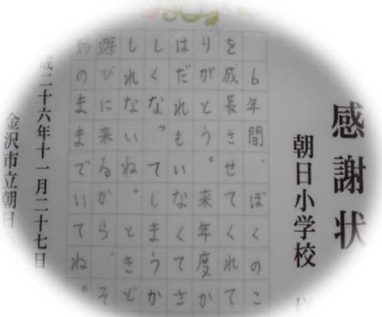 感謝状
朝日小学校
6年間、ぼくのこ
を成長させてくれて
りがとう。来年度か
はだれもいなくてさ
しくなってしまうか
しれないね。ときど
遊びに来るから、そ
のままでいてね。
成二十六年十一月二十七日
金沢市立朝日